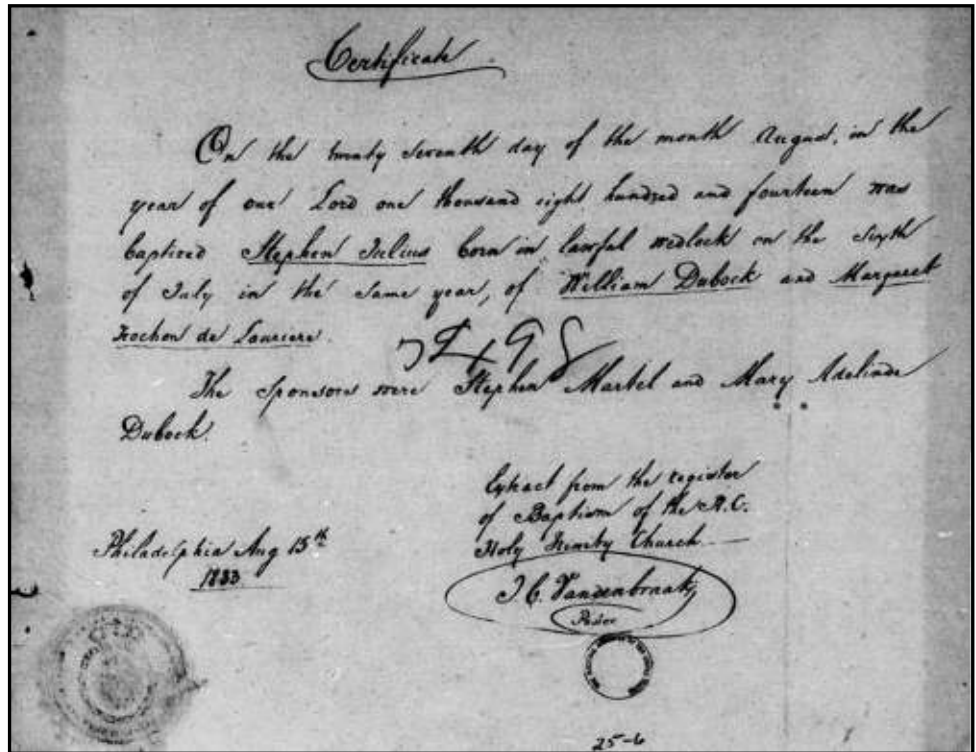 Certificate.
On the twenty seventh day of the month August, in the
year of our Lord one thousand eight hundred and fourteen was
baptized Stephen Julius born in lawful wedlock on the sixth
of July in the same year, of William Dubock and Margaret
Frochon de Lauriere.
7498
The sponsors were Stephen Martel and Mary Adelinde
Dubock.
Extract from the register
of Baptism of the R.C.
Holy Trinity Church.
Philadelphia Aug 15th
1833
J. C. Vandenbraak
Pastor
25-6